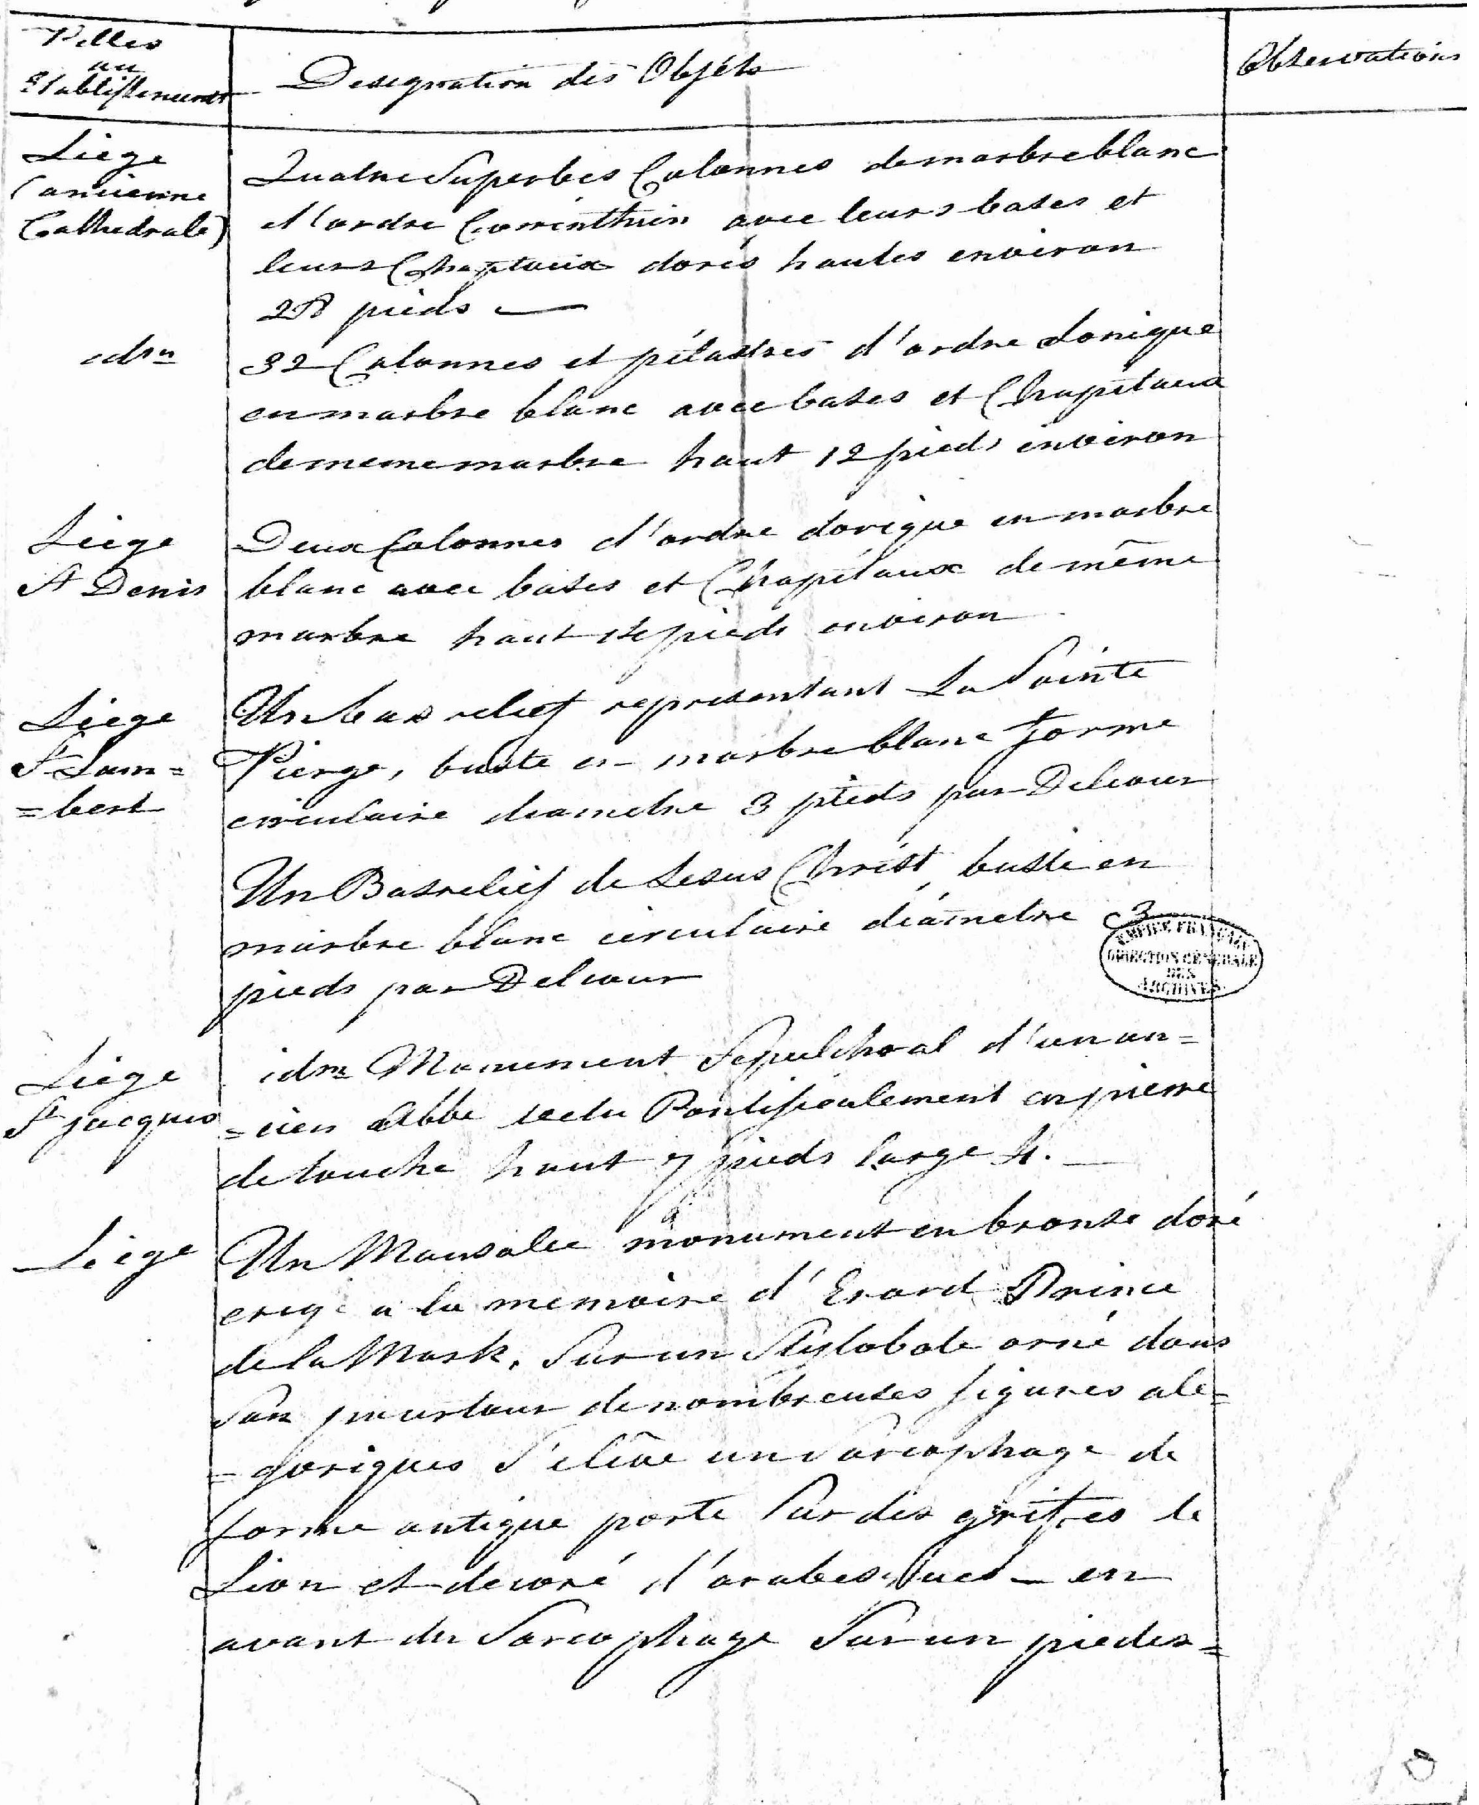 Villes
ou
Etablissements
Designation des Objéts
Observations
Liège
(ancienne
Cathedrale)
Quatre Superbes Colonnes de marbre blanc
d'ordre Corinthien avec leurs bases et
leurs Chapitaux dorés hautes environ
28 pieds
idm
32 Colonnes et pilastres d'ordre Ionique
en marbre blanc avec bases et Chapitaux
de meme marbre haut 12 pieds environ
Liege
St Denis
Deux Colonnes d'ordre dorique en marbre
blanc avec bases et Chapitaux de même
marbre haut pieds environ
Liege
St Lam=
=bert
Un bas relief representant La Sainte
Vierge, buste en marbre blanc forme
circulaire diametre 3 pieds par Delcour
Un Basrelief de Jesus Christ, buste en
marbre blanc circulaire diametre 3
pieds par Delcour
EMPIRE FRANÇAIS
DIRECTION GENERALE
DES
ARCHIVES
Liege
St Jacques
idm Monument Sepulchral d'un an=
=cien Abbé vetu Pontificalement en pierre
de touche haut 7 pieds large 4.
Liege
Un Mausolee monument en bronse doré
erigé a la memoire d'Erard Prince
de la Mark. Sur un Stylobate orné dans
Son pourtour de nombreuses figures ale=
=goriques S'eléve un Sarcophage de
forme antique porté Sur des griffes de
Lion et decoré d'arabesques - en
avant du Sarcophage Sur un piedes=